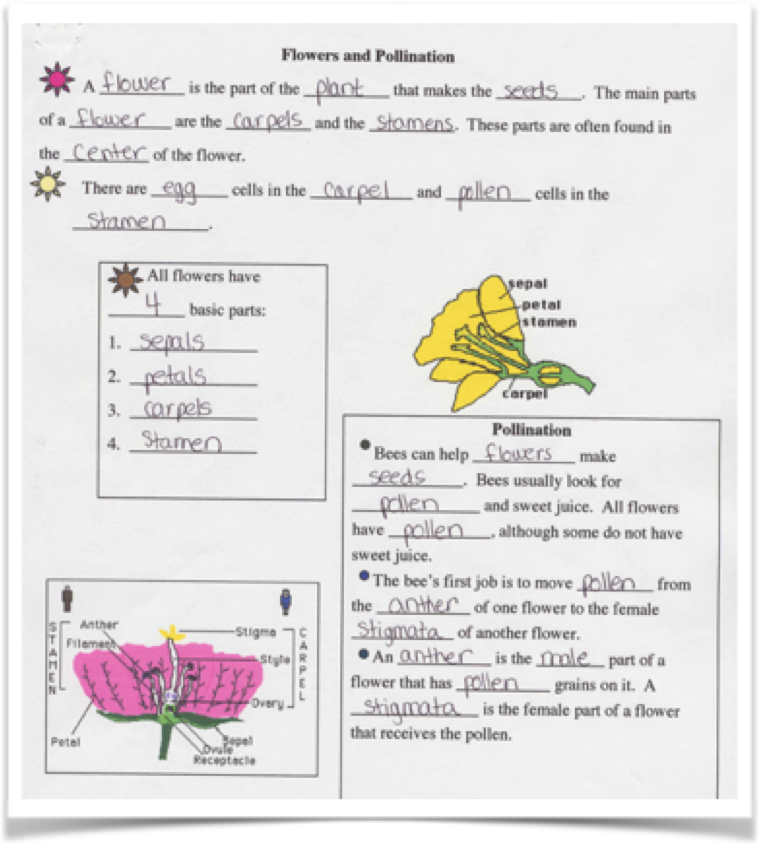 Flowers and Pollination
A flower is the part of the plant that makes the seeds. The main parts
of a flower are the carpels and the stamens. These parts are often found in
the center of the flower.
There are egg cells in the carpel and pollen cells in the
stamen.
All flowers have
4 basic parts:
1. sepals
2. petals
3. carpels
4. stamen
sepal
petal
stamen
carpel
Pollination
Bees can help flowers make
seeds. Bees usually look for
pollen and sweet juice. All flowers
have pollen, although some do not have
sweet juice.
The bee's first job is to move pollen from
the anther of one flower to the female
stigmata of another flower.
An anther is the male part of a
flower that has pollen grains on it. A
stigmata is the female part of a flower
that receives the pollen.
STAMEN
Anther
Filament
Petal
Stigma
Style
Ovary
CARPEL
Sepal
Ovule
Receptacle